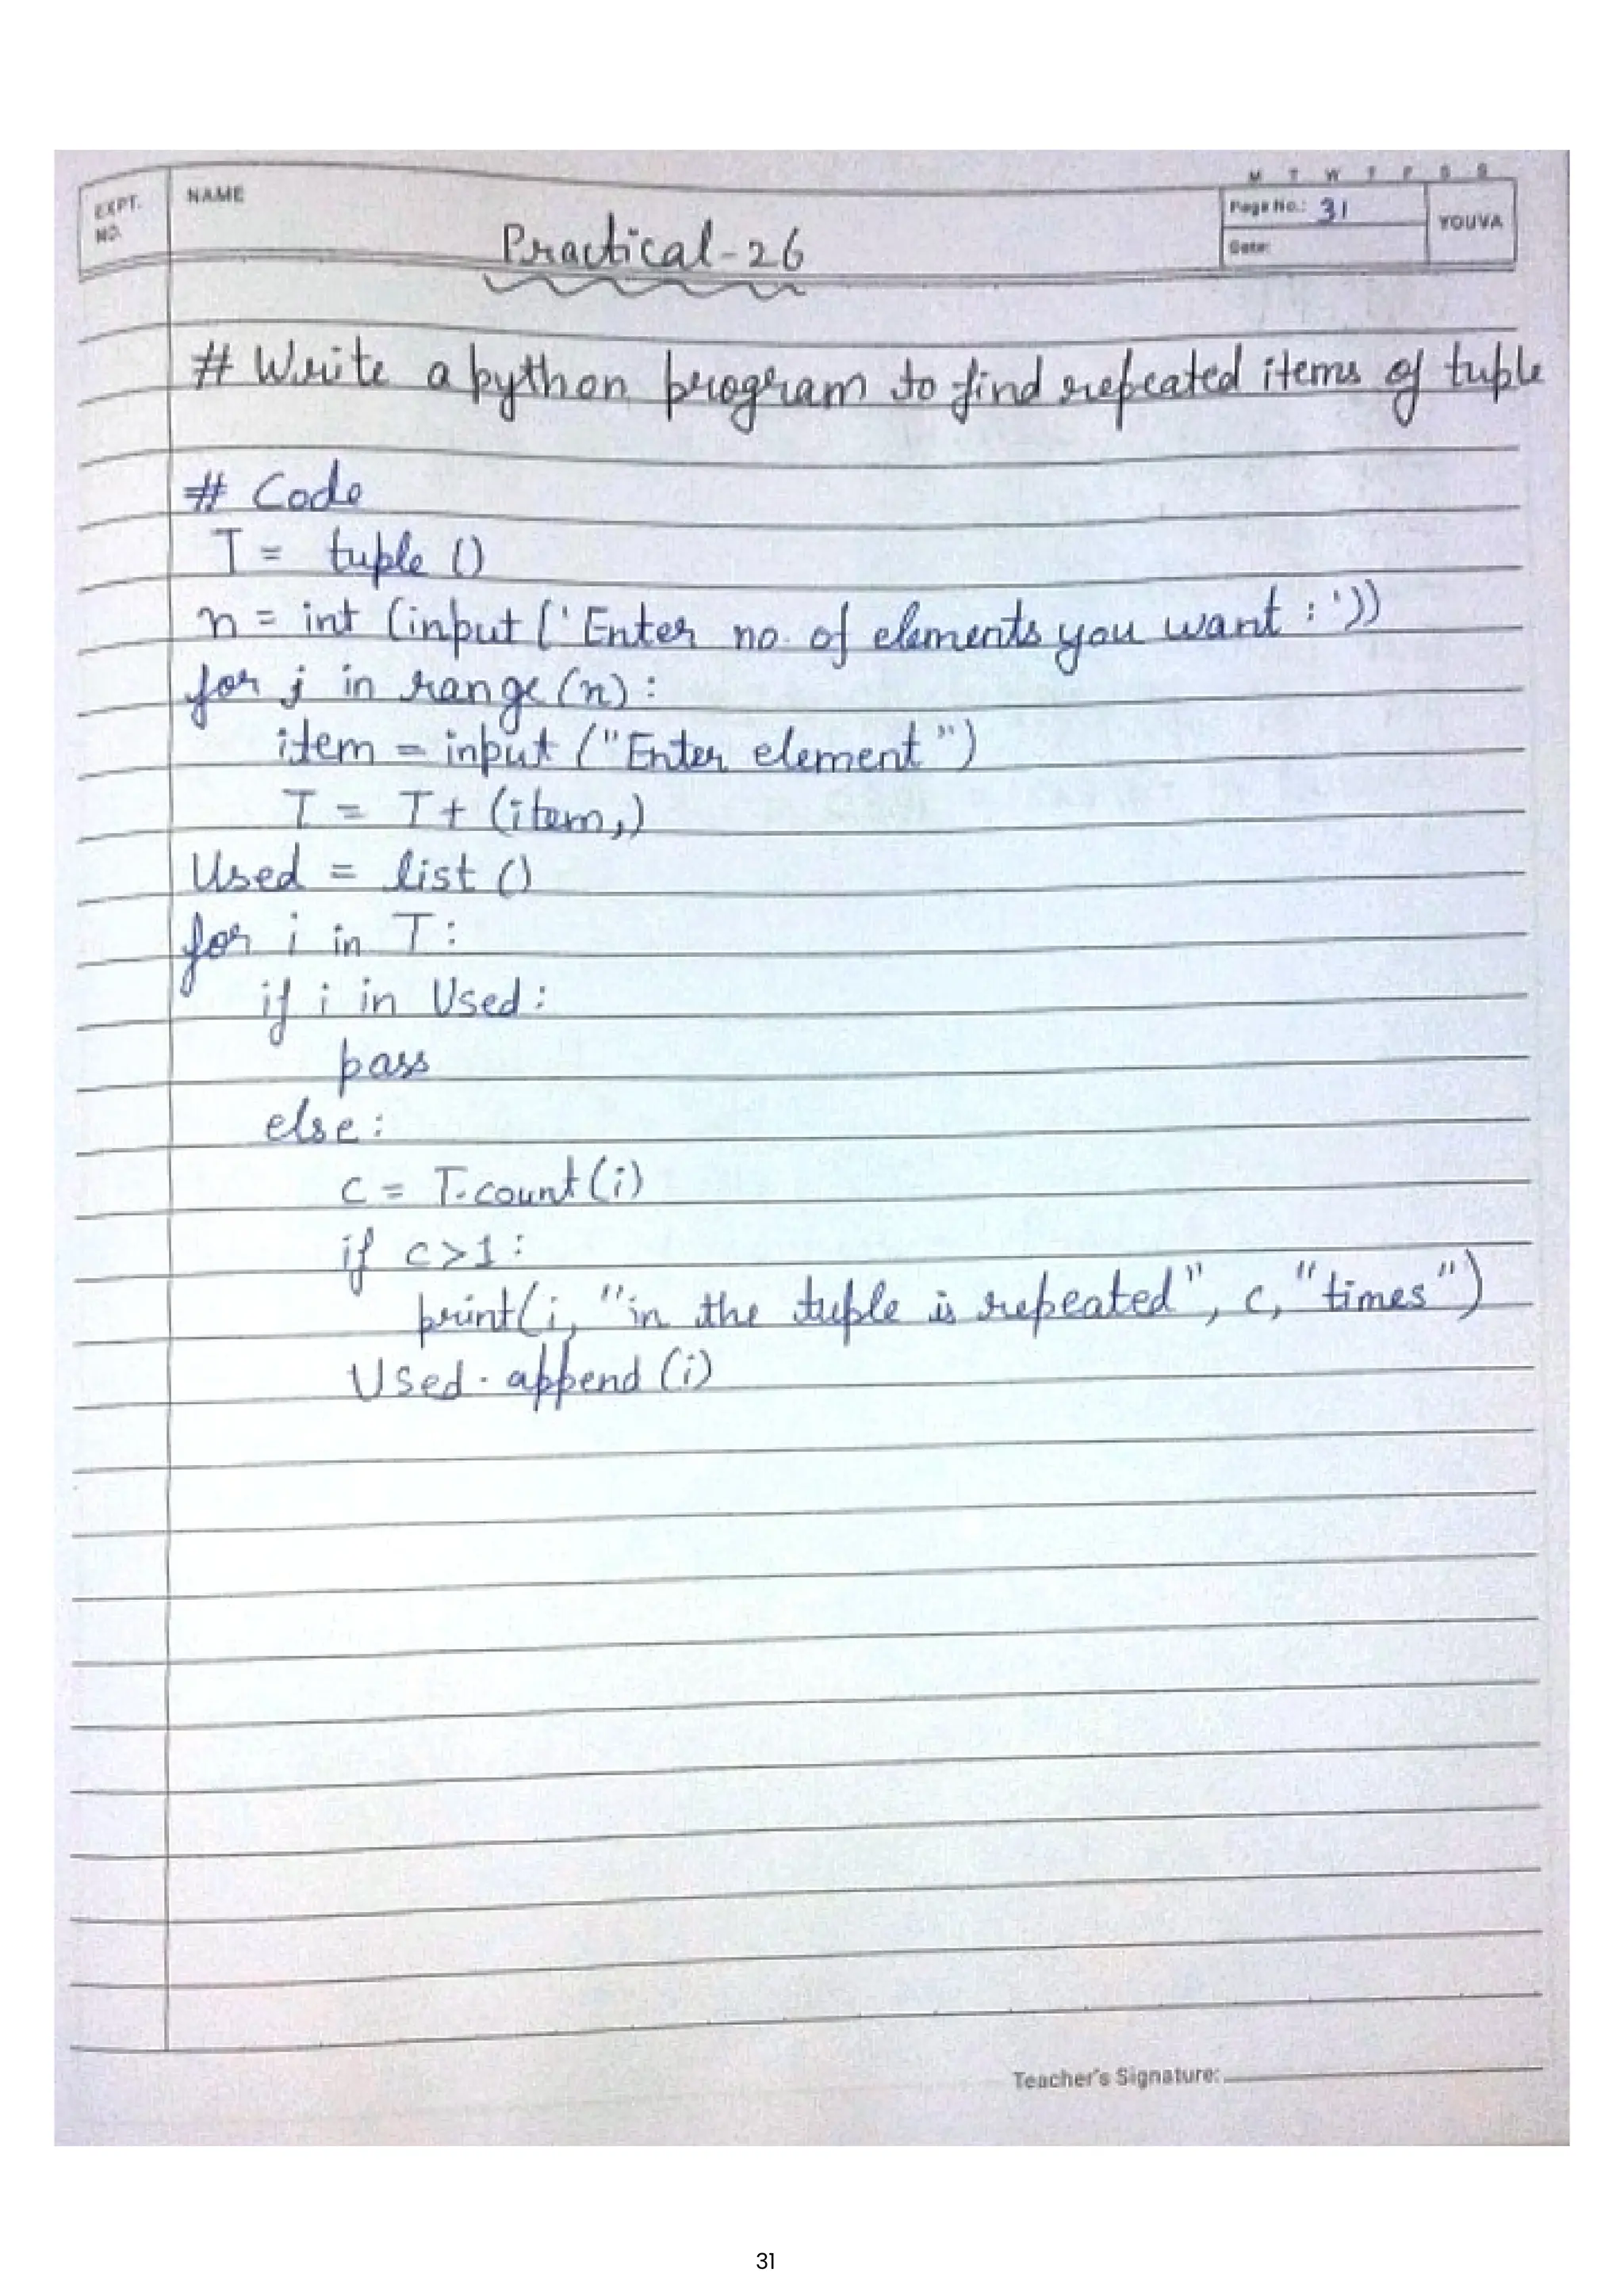 M T W T F S S
EXPT. NO.
NAME
Page No.: 31
YOUVA
Date:
Practical-26
# Write a python program to find repeated items of tuple
# Code
T = tuple ()
n = int (input ('Enter no. of elements you want : '))
for j in range (n) :
    item = input ("Enter element ")
    T = T + (item,)
Used = list ()
for i in T :
    if i in Used :
        pass
    else :
        c = T.count (i)
        if c>1 :
            print(i, "in the tuple is repeated", c, "times")
        Used . append (i)
Teacher's Signature:
31